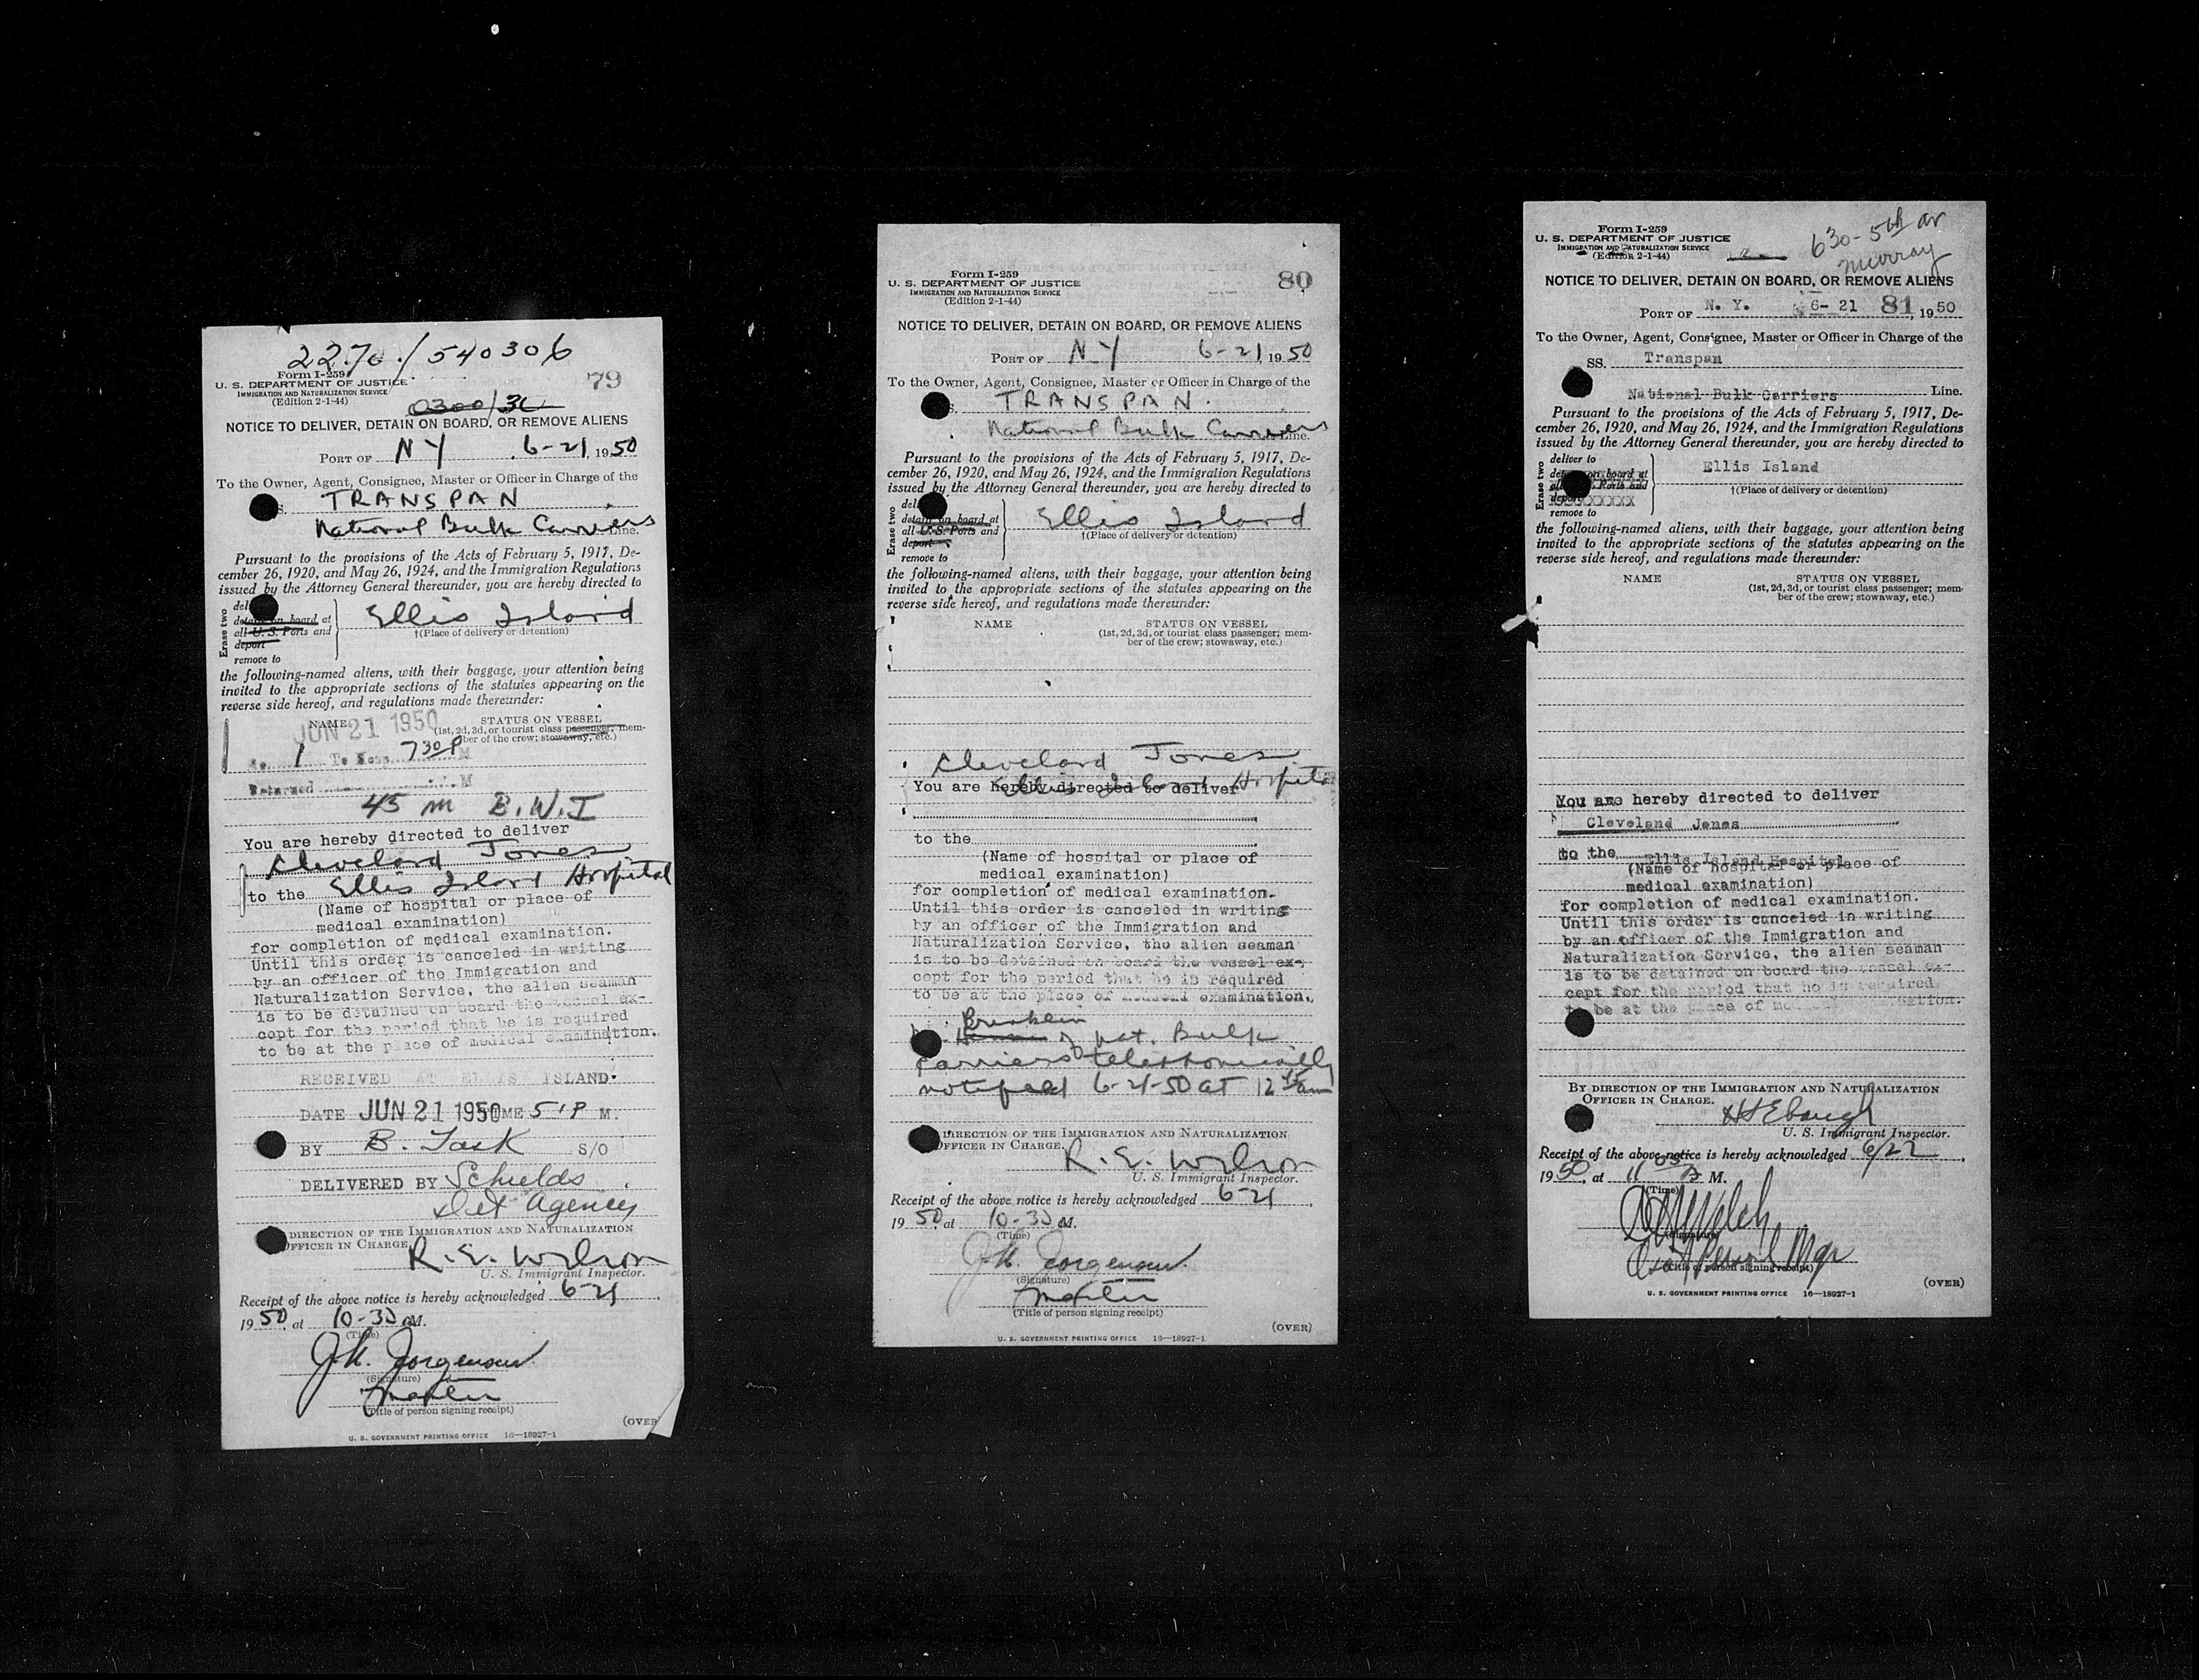 2270/540306
Form I-259
U. S. DEPARTMENT OF JUSTICE
IMMIGRATION AND NATURALIZATION SERVICE
(Edition 2-1-44)
79
0300/30
NOTICE TO DELIVER, DETAIN ON BOARD, OR REMOVE ALIENS
PORT OF NY 6-21, 1950
To the Owner, Agent, Consignee, Master or Officer in Charge of the
TRANSPAN
National Bulk Carriers Line.
Pursuant to the provisions of the Acts of February 5, 1917, De-
cember 26, 1920, and May 26, 1924, and the Immigration Regulations
issued by the Attorney General thereunder, you are hereby directed to
Erase two
detain on board at
all U. S. Ports and
deport
remove to
Ellis Island
†(Place of delivery or detention)
the following-named aliens, with their baggage, your attention being
invited to the appropriate sections of the statutes appearing on the
reverse side hereof, and regulations made thereunder:
NAME
JUN 21 1950
STATUS ON VESSEL
(1st, 2d, 3d, or tourist class passenger; mem-
ber of the crew; stowaway, etc.)
No. 1 To Hosp. 730 P M
Returned M
45 m B.W.I
You are hereby directed to deliver
Cleveland Jones
to the Ellis Island Hospital
(Name of hospital or place of
medical examination)
for completion of medical examination.
Until this order is canceled in writing
by an officer of the Immigration and
Naturalization Service, the alien seaman
is to be detained on board the vessel ex-
cept for the period that he is required
to be at the place of medical examination.
RECEIVED AT ELLIS ISLAND
DATE JUN 21 1950 TIME 51 P M.
BY B. Task S/O
DELIVERED BY Schields
Det Agency
DIRECTION OF THE IMMIGRATION AND NATURALIZATION
OFFICER IN CHARGE.
R. E. Wilson
U. S. Immigrant Inspector.
Receipt of the above notice is hereby acknowledged 6-21,
1950, at 10-30 a M.
(Time)
J. H. Jorgensen
(Signature)
Master
(Title of person signing receipt)
(OVER)
U. S. GOVERNMENT PRINTING OFFICE 16—18927-1
Form I-259
U. S. DEPARTMENT OF JUSTICE
IMMIGRATION AND NATURALIZATION SERVICE
(Edition 2-1-44)
80
NOTICE TO DELIVER, DETAIN ON BOARD, OR REMOVE ALIENS
PORT OF NY 6-21, 1950
To the Owner, Agent, Consignee, Master or Officer in Charge of the
TRANSPAN.
National Bulk Carriers Line.
Pursuant to the provisions of the Acts of February 5, 1917, De-
cember 26, 1920, and May 26, 1924, and the Immigration Regulations
issued by the Attorney General thereunder, you are hereby directed to
Erase two
detain on board at
all U. S. Ports and
deport
remove to
Ellis Island
†(Place of delivery or detention)
the following-named aliens, with their baggage, your attention being
invited to the appropriate sections of the statutes appearing on the
reverse side hereof, and regulations made thereunder:
NAME
STATUS ON VESSEL
(1st, 2d, 3d, or tourist class passenger; mem-
ber of the crew; stowaway, etc.)
Cleveland Jones
You are hereby directed to deliver
Ellis Island Hospital
to the
(Name of hospital or place of
medical examination)
for completion of medical examination.
Until this order is canceled in writing
by an officer of the Immigration and
Naturalization Service, the alien seaman
is to be detained on board the vessel ex-
cept for the period that he is required
to be at the place of medical examination.
of Nat. Bulk
Carriers telephonically
notified 6-21-50 at 12 15 am
DIRECTION OF THE IMMIGRATION AND NATURALIZATION
OFFICER IN CHARGE.
R. E. Wilson
U. S. Immigrant Inspector.
Receipt of the above notice is hereby acknowledged 6-21,
1950, at 10-30 a M.
(Time)
J. H. Jorgensen
(Signature)
Master
(Title of person signing receipt)
(OVER)
U. S. GOVERNMENT PRINTING OFFICE 16—18927-1
630-5th av
Murray
Form I-259
U. S. DEPARTMENT OF JUSTICE
IMMIGRATION AND NATURALIZATION SERVICE
(Edition 2-1-44)
NOTICE TO DELIVER, DETAIN ON BOARD, OR REMOVE ALIENS
PORT OF N. Y. 6- 21 81, 1950
To the Owner, Agent, Consignee, Master or Officer in Charge of the
SS. Transpan
National Bulk Carriers Line.
Pursuant to the provisions of the Acts of February 5, 1917, De-
cember 26, 1920, and May 26, 1924, and the Immigration Regulations
issued by the Attorney General thereunder, you are hereby directed to
Erase two
deliver to
on board at
Ports and
deport XXXXXX
remove to
Ellis Island
†(Place of delivery or detention)
the following-named aliens, with their baggage, your attention being
invited to the appropriate sections of the statutes appearing on the
reverse side hereof, and regulations made thereunder:
NAME
STATUS ON VESSEL
(1st, 2d, 3d, or tourist class passenger; mem-
ber of the crew; stowaway, etc.)
You are hereby directed to deliver
Cleveland Jones
to the Ellis Island Hospital
(Name of hospital or place of
medical examination)
for completion of medical examination.
Until this order is canceled in writing
by an officer of the Immigration and
Naturalization Service, the alien seaman
is to be detained on board the vessel ex-
cept for the period that he is required
to be at the place of medical examination.
BY DIRECTION OF THE IMMIGRATION AND NATURALIZATION
OFFICER IN CHARGE.
H S Ebaugh
U. S. Immigrant Inspector.
Receipt of the above notice is hereby acknowledged 6/22,
1950, at 11 05 A M.
(Time)
Welch
(Signature)
(Title of person signing receipt)
(OVER)
U. S. GOVERNMENT PRINTING OFFICE 16—18927-1